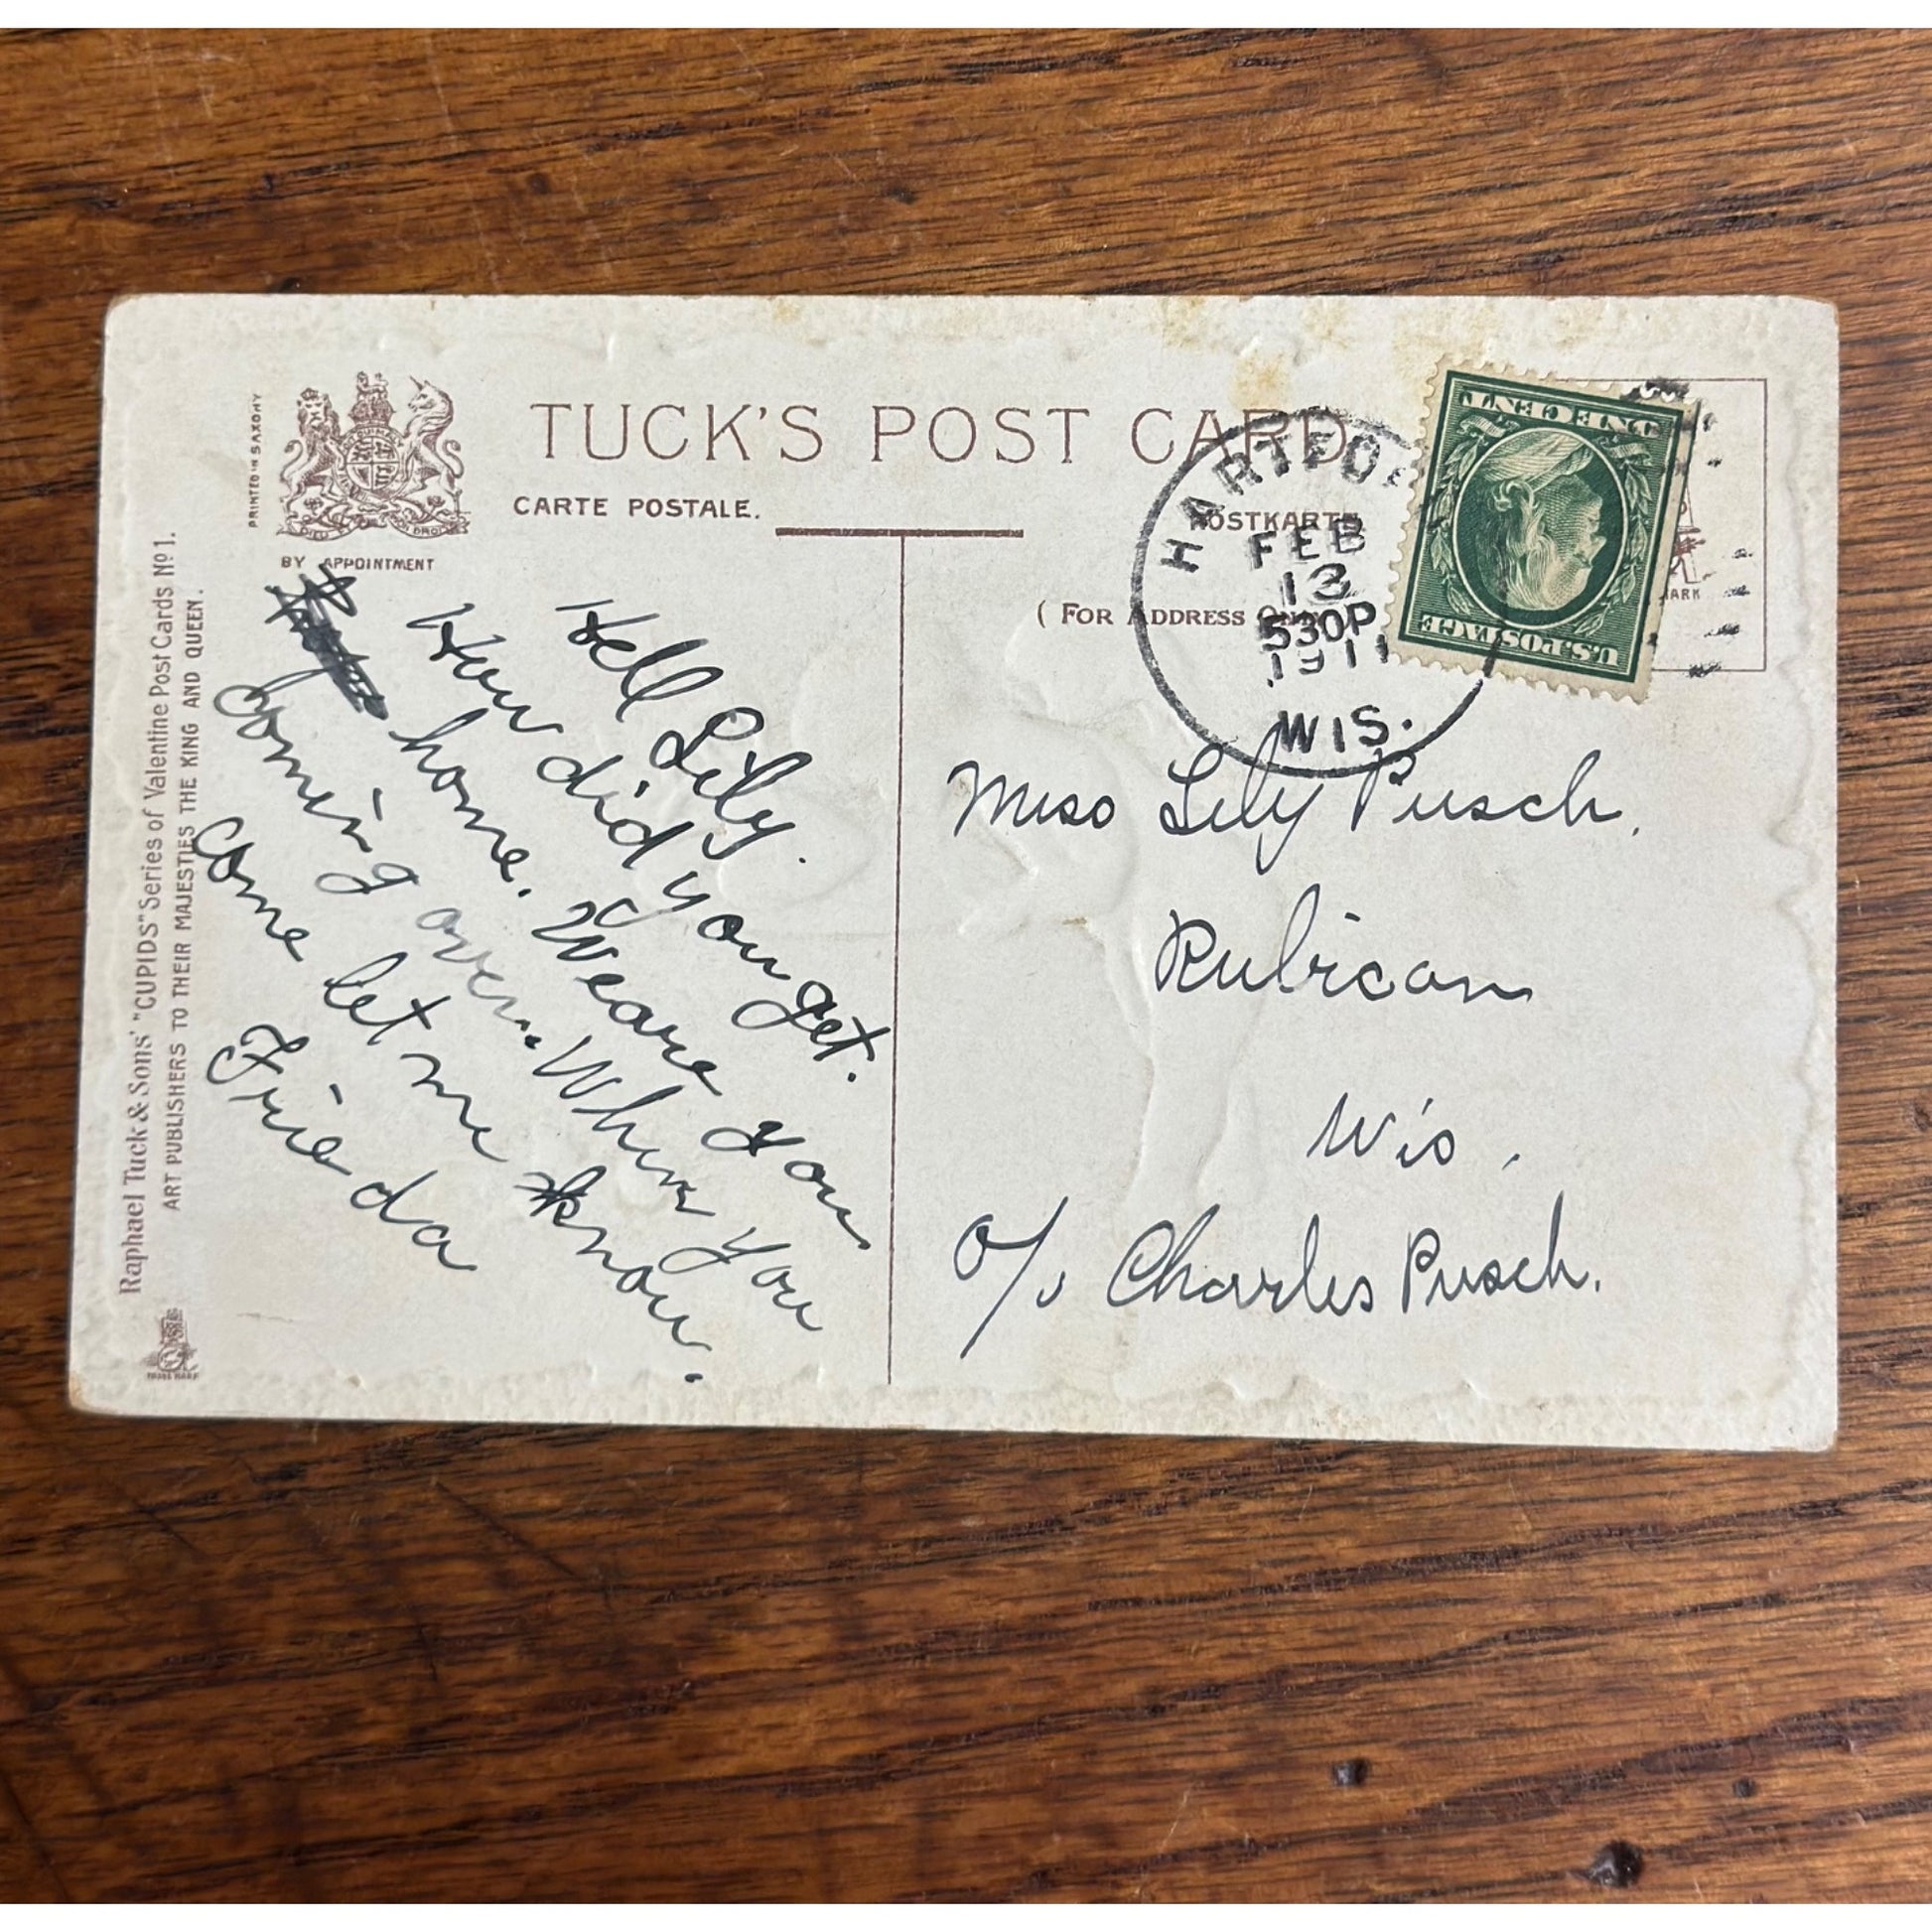 PRINTED IN SAXONY
BY APPOINTMENT
TUCK'S POST CARD
CARTE POSTALE.
POSTKARTE
( FOR ADDRESS
Raphael Tuck & Sons' "CUPIDS" Series of Valentine Post Cards Nº 1.
ART PUBLISHERS TO THEIR MAJESTIES THE KING AND QUEEN.
TRADE MARK
HARTFO
FEB
13
530P
1911
WIS.
U.S. POSTAGE
ONE CENT
Hell Lily.
How did you get.
home. We are you
coming over. When you
come let me know.
Frieda
Miss Lily Pusch.
Rubicon
Wis.
c/o Charles Pusch.